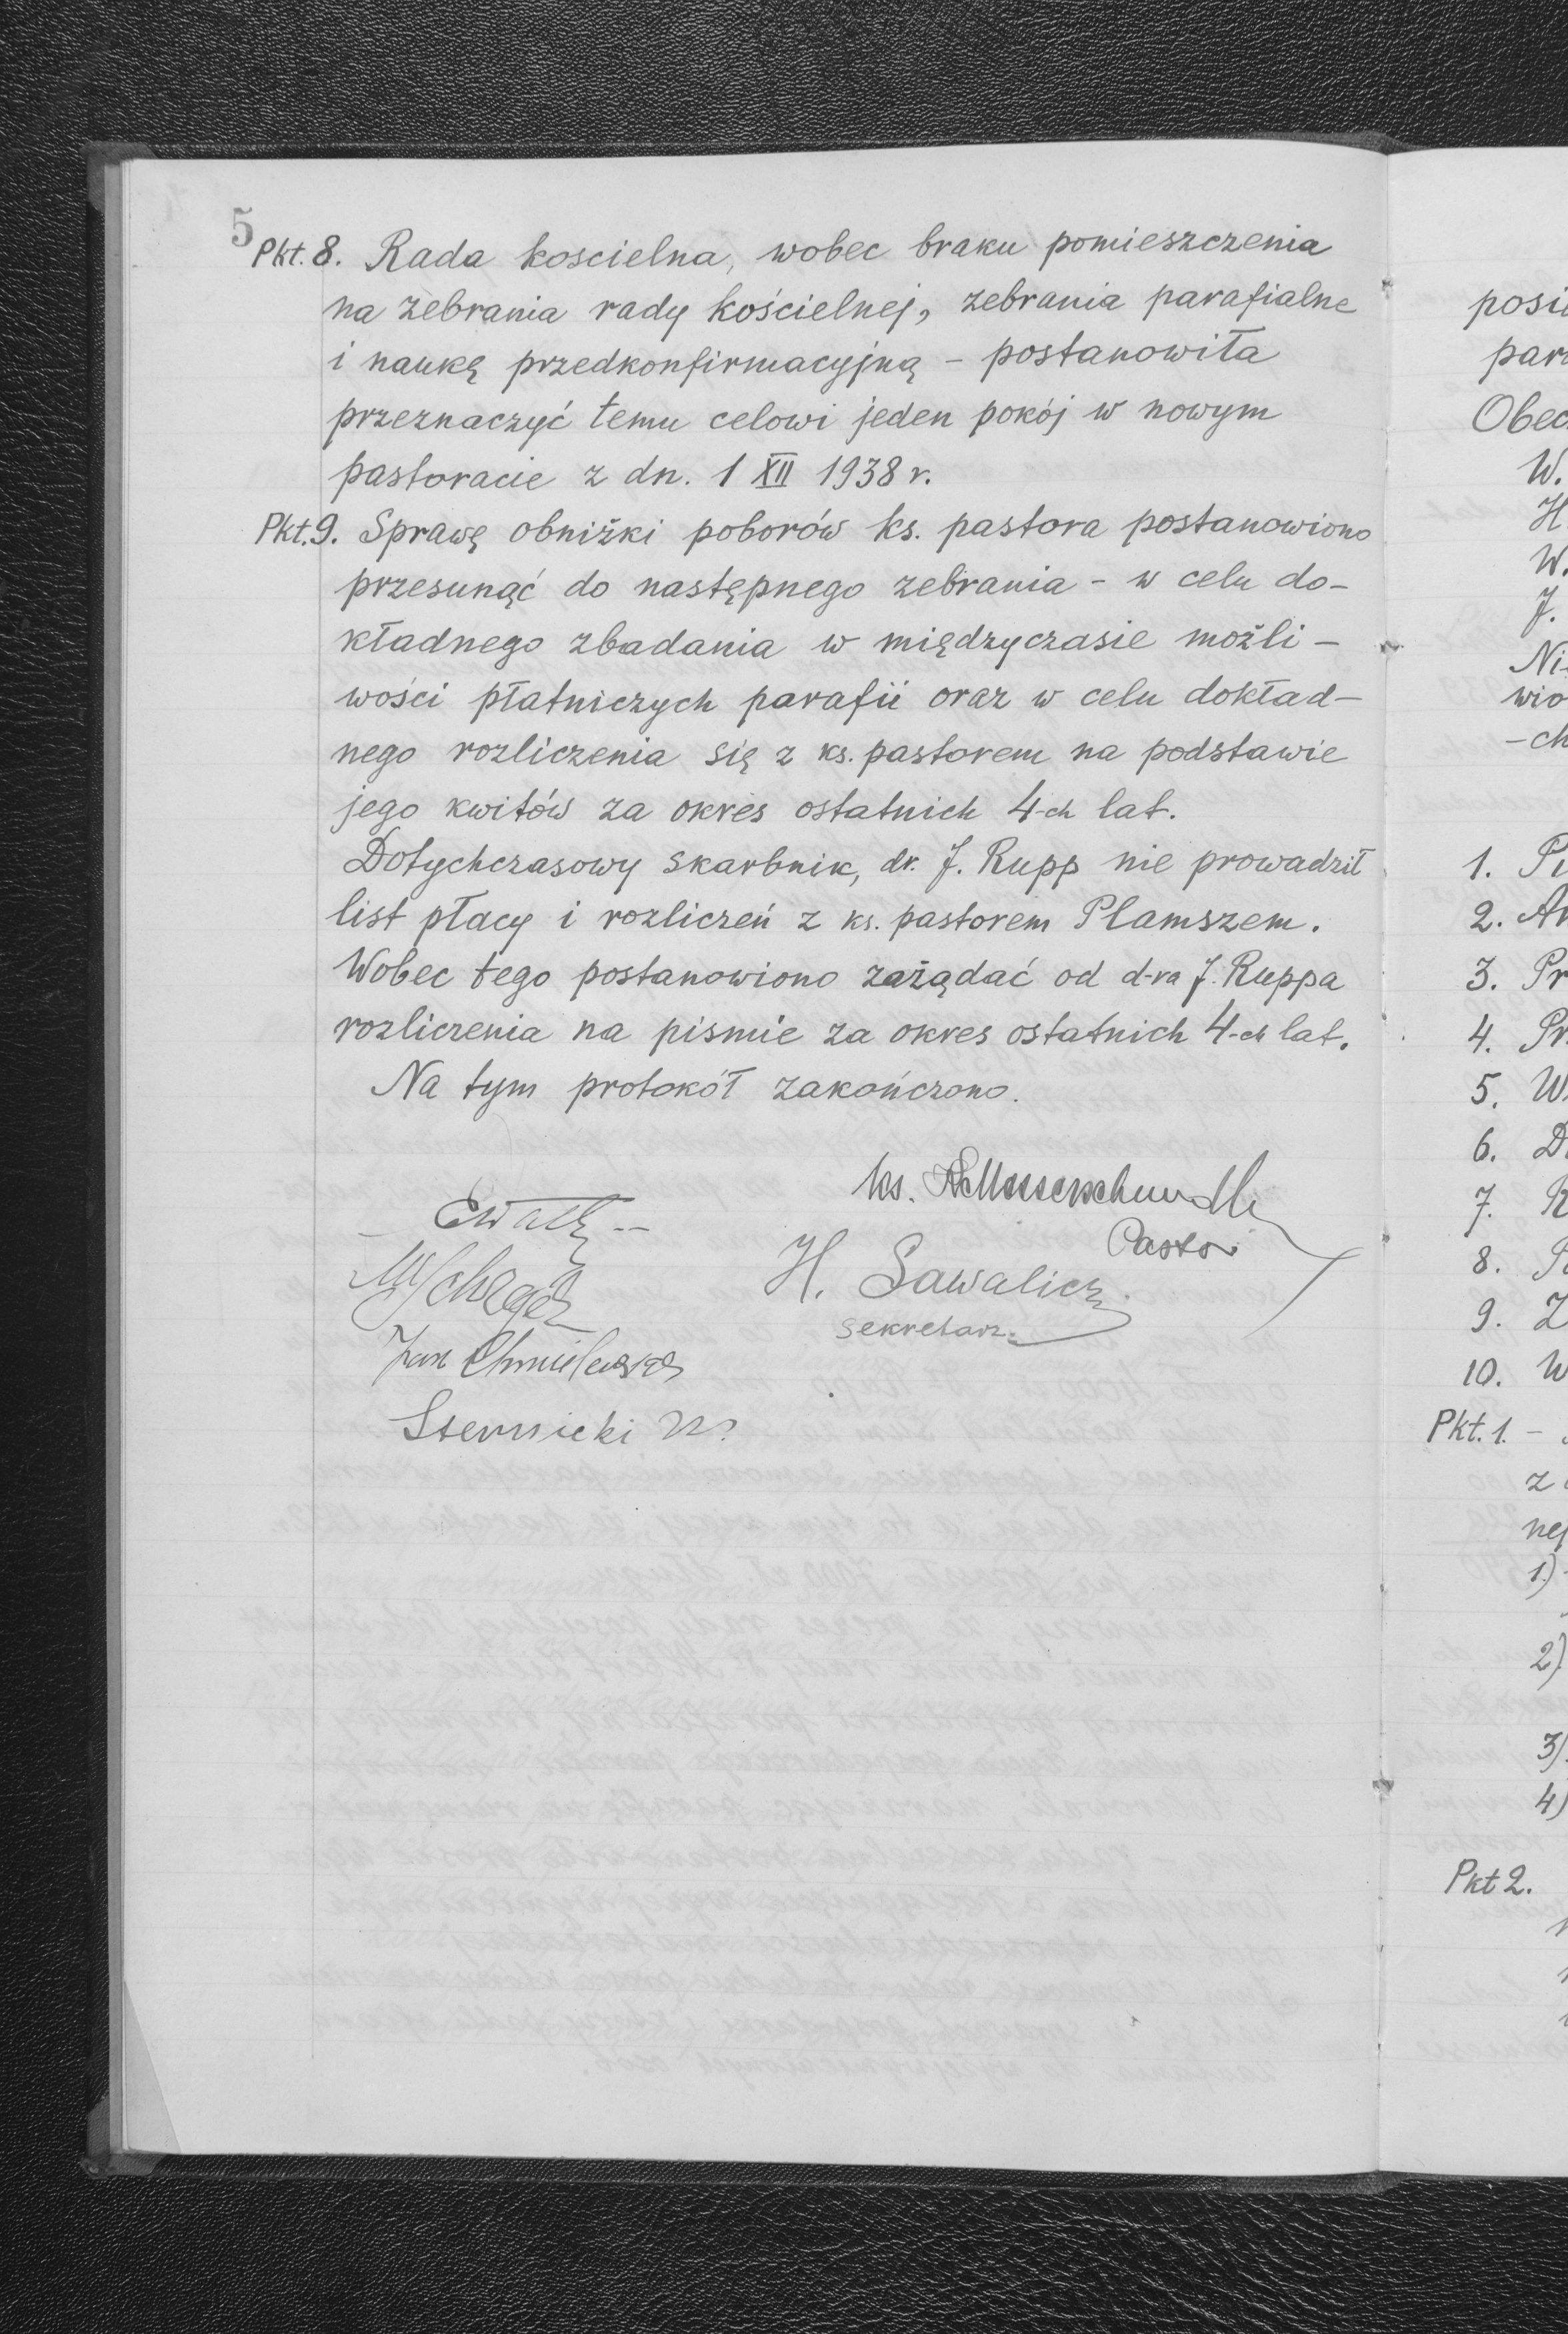 5
Pkt. 8. Rada koscielna, wobec braku pomieszczenia
na zebrania rady kościelnej, zebrania parafialne
i naukę przedkonfirmacyjną – postanowiła
przeznaczyć temu celowi jeden pokój w nowym
pastoracie z dn. 1 XII 1938 r.
Pkt. 9. Sprawę obniżki poborów ks. pastora postanowiono
przesunąć do następnego zebrania – w celu do-
kładnego zbadania w międzyczasie możli-
wości płatniczych parafii oraz w celu dokład-
nego rozliczenia się z ks. pastorem na podstawie
jego kwitów za okres ostatnich 4-ch lat.
Dotychczasowy skarbnik, dr. J. Rupp nie prowadził
list płacy i rozliczeń z ks. pastorem Plamszem.
Wobec tego postanowiono zażądać od d-ra J. Ruppa
rozliczenia na pismie za okres ostatnich 4-ch lat.
Na tym protokół zakończono.
ks. Messerschmidt
Pastor
H. Sawalicz
sekretarz.
Jan
Sternicki
posi
par
Obec
W.
H
W.
J.
Ni
wio
-ch
1.
2.
3. Pr
4. Pr
5. W
6.
7.
8.
9. Z
10. W
Pkt. 1. –
z
nej
1)
2)
3)
4)
Pkt 2.